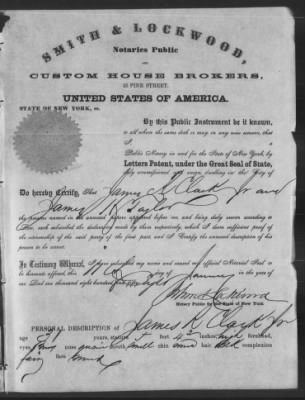 SMITH & LOCKWOOD,
Notaries Public
AND
CUSTOM HOUSE BROKERS,
53 PINE STREET.
UNITED STATES OF AMERICA.
STATE OF NEW YORK, ss.
By this Public Instrument be it known,
to all whom the same doth or may in any wise concern, that
I,
a Public Notary in and for the State of New York, by
Letters Patent, under the Great Seal of State,
duly commissioned and sworn, dwelling in the City of
Do hereby Certify, That James R Clark Jr and
James R Taylor
the persons named in the annexed papers appeared before me, and being duly sworn according to
law, each subscribed the statements made by them respectively, which I deem sufficient proof of
the citizenship of the said party of the first part, and I Certify the annexed description of his
person to be correct.
In Testimony Whereof, I have subscribed my name and caused my official Notarial Seal to
be hereunto affixed, this day of January in the year of
our Lord one thousand eight hundred
Lockwood
Notary Public in the State of New York.
PERSONAL DESCRIPTION of James R Clark Jr
age years, stature 5 feet inches, high forehead,
eyes nose mouth small chin hair complexion
fair face